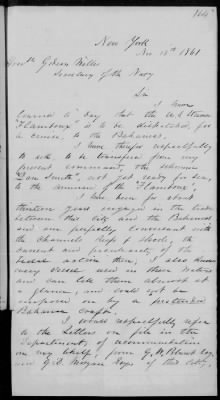 164
New York
Nov 18th 1861
Honble Gideon Welles
Secretary of the Navy
Sir
I have
learned to day that the U.S. Steamer
"Flambeau" is to be dispatched, for
a cruise, to the Bahamas.
I have therefore respectfully
to ask to be transferred from my
present command, the schooner
"Dan Smith", not yet ready for sea,
to the command of the "Flambeau",
I have been for about
thirteen years engaged in the trade
between this City and the Bahamas
and am perfectly conversant with
the Channels Reefs & Shoals, the
current and
action there, I also know
every vessel used in those waters
and can tell them almost at
a glance, and could not be
imposed on by a pretended
Bahama Coaster.
I would respectfully refer
to the letters on file in the
Department, of recommendation
on my behalf, from G. W. Blunt Esq.
and E. D. Morgan Esqs of this City,